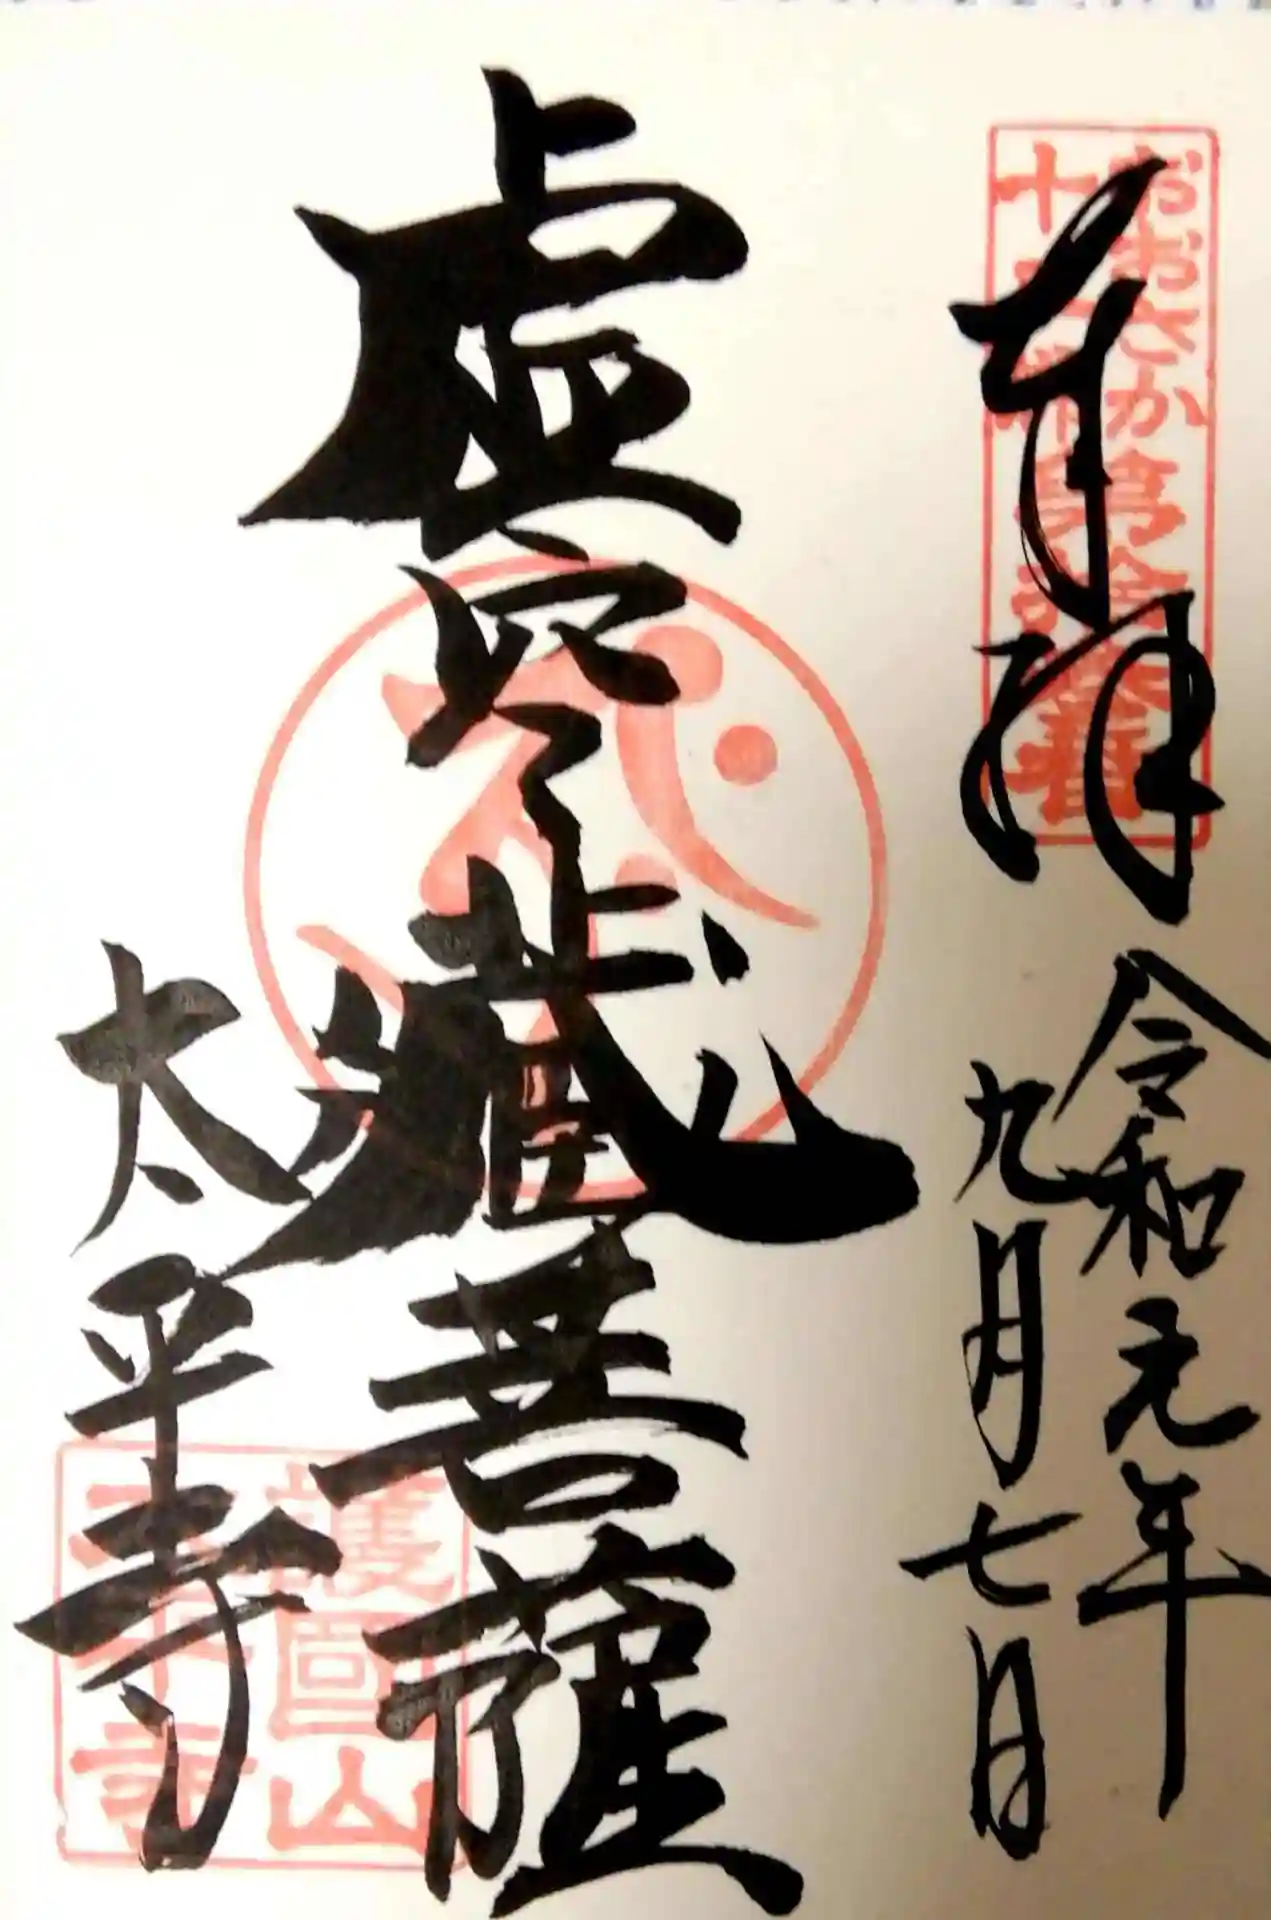 奉拝
令和元年
九月七日
おおさか
十三佛
第拾参番
虚空蔵菩薩
太平寺
護国山
太平寺